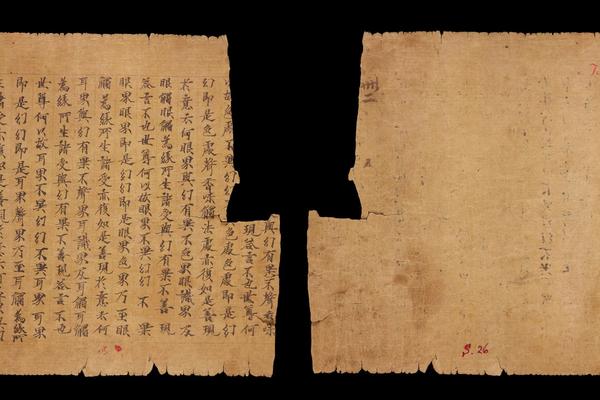 與幻有異不聲香味
現荅言不也世尊何
故色處不異幻幻 色處色處即是幻
幻即是色處聲香味觸法處亦復如是善現
於意云何眼界與幻有異不色界眼識界及
眼觸眼觸為緣所生諸受與幻有異不善現
荅言不也世尊何以故眼界不異幻幻不異
眼界眼界即是幻幻即是眼界色界乃至眼
觸為緣所生諸受亦復如是善現於意云何
耳界與幻有異不聲界耳識界及耳觸耳觸
為緣所生諸受與幻有異不善現荅言不也
世尊何以故耳界不異幻幻不異耳界耳界
即是幻幻即是耳界聲界乃至耳觸為緣所
生諸受亦復如是善現
卌二
S. 26